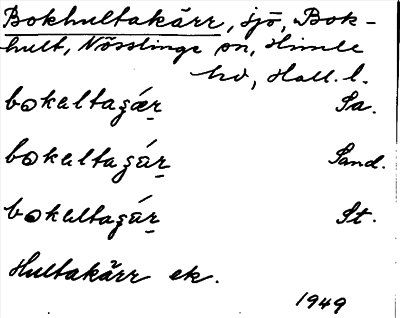 Bokhultakärr, sjö, Bok-
hult, Nösslinge sn, Himle
hd, Hall. l.
bokaltagǽr Sa.
bokaltagár Sand.
bokaltagár St.
Hultakärr ek.
1949